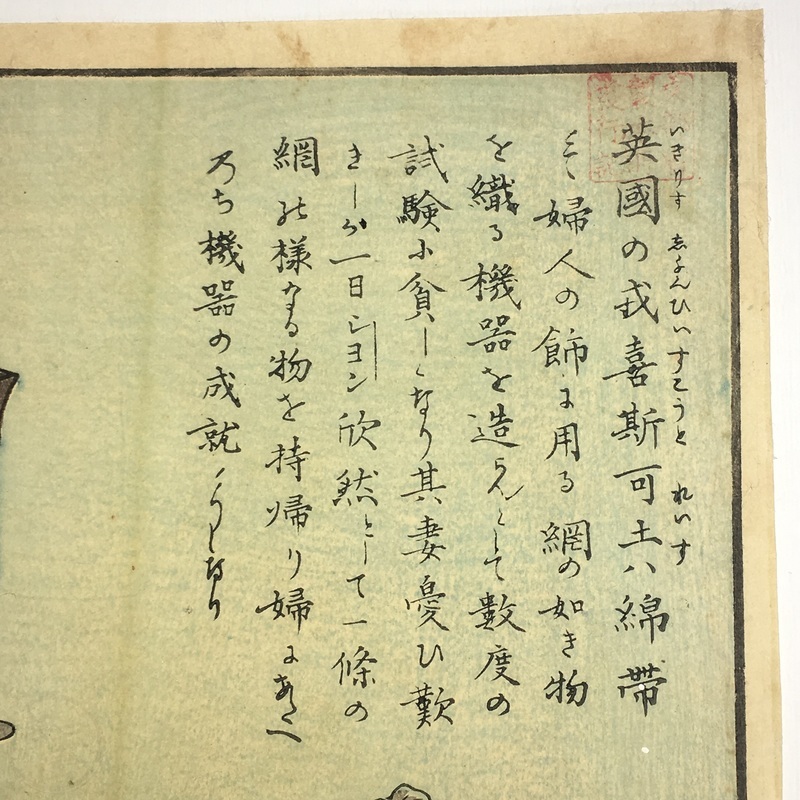 いきりす ゑよんひいすこうと れいす
英國の戎喜斯可土ハ綿帶
とて婦人の飾に用る網の如き物
を織る機器を造らんとして數度の
試驗に貧しくなり其妻憂ひ歎
きしが一日ジヨン欣然として一條の
網の様なる物を持帰り婦にあたへ
乃ち機器の成就